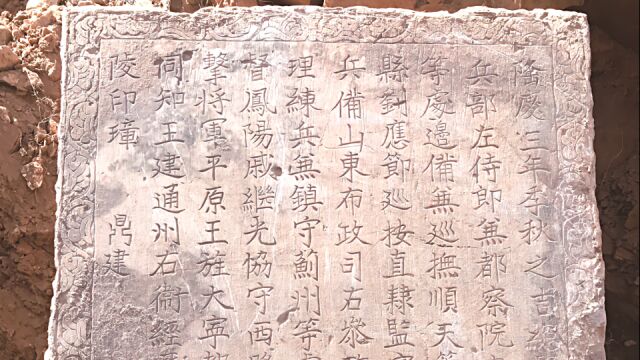 隆慶三年季秋之吉
兵部左侍郎兼都察院
等處邊備兼巡撫順天
縣劉應節巡按直隸監
兵備山東布政司右叅
理練兵兼鎮守薊州等
督鳳陽戚繼光協守西路
擊將軍平原王旌大寧都
同知王建通州右衛經
陵印璋 鼎建